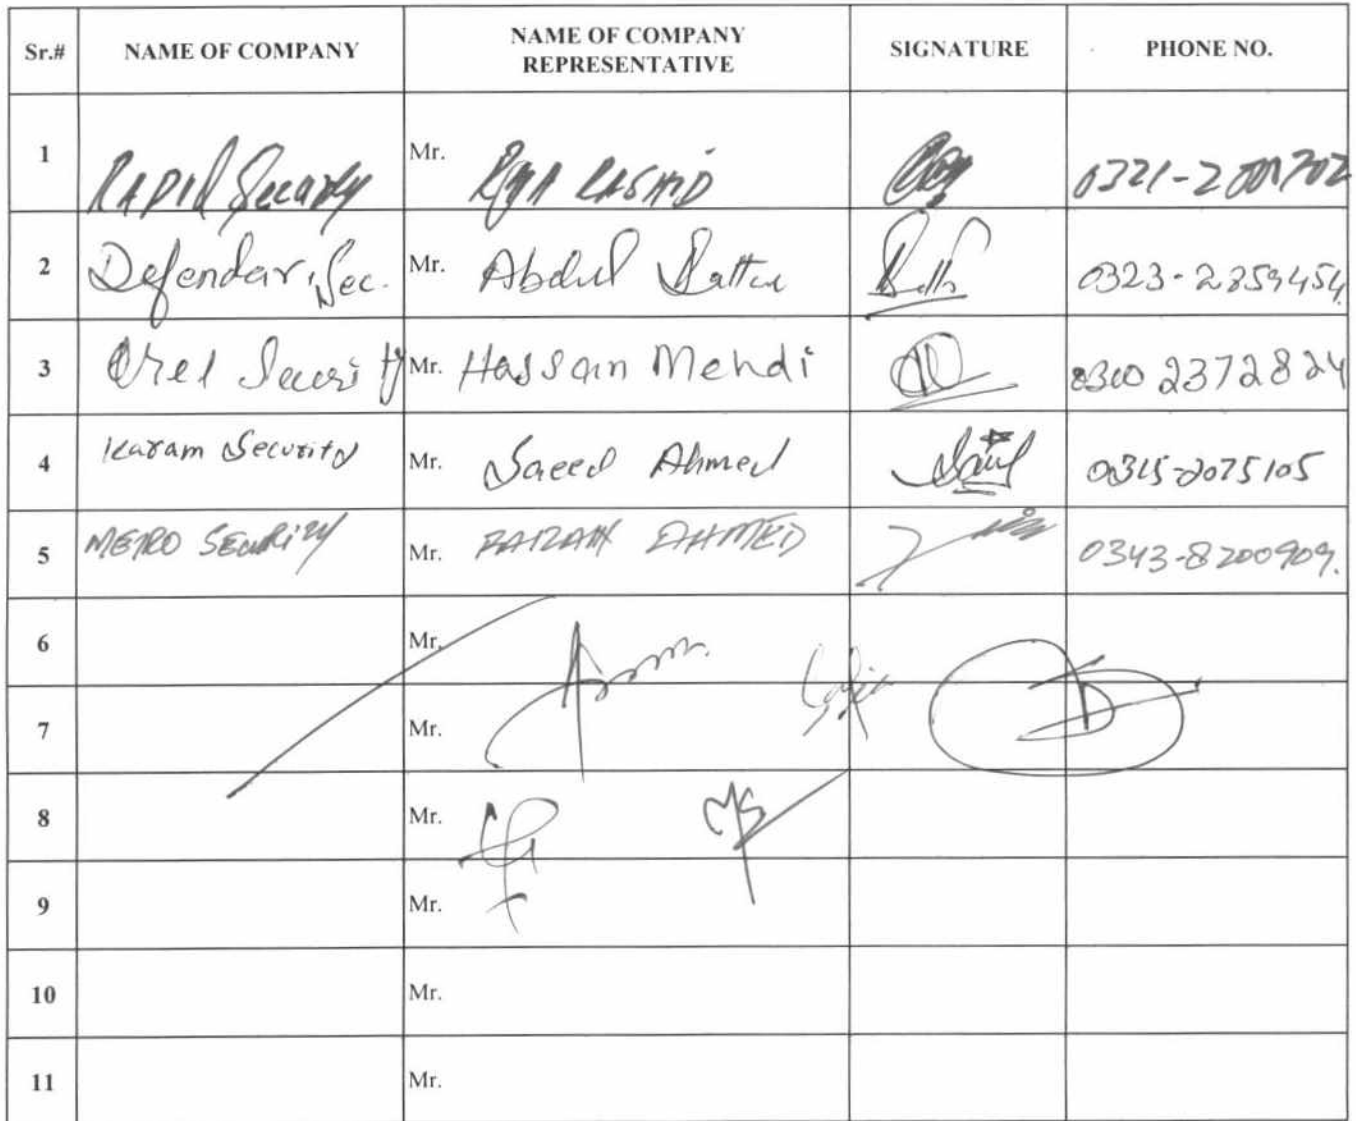 Sr.# NAME OF COMPANY NAME OF COMPANY REPRESENTATIVE SIGNATURE PHONE NO.
1 RAPID Security Mr. RAJA RASHID 0321-2001702
2 Defendar Sec. Mr. Abdul Sattar 0323-2859454
3 Orel Security Mr. Hassan Mehdi 0300 2372824
4 Karam Security Mr. Saeed Ahmed 0315-2075105
5 METRO SECURITY Mr. AHMED 0343-8200909.
6 Mr.
7 Mr.
8 Mr.
9 Mr.
10 Mr.
11 Mr.